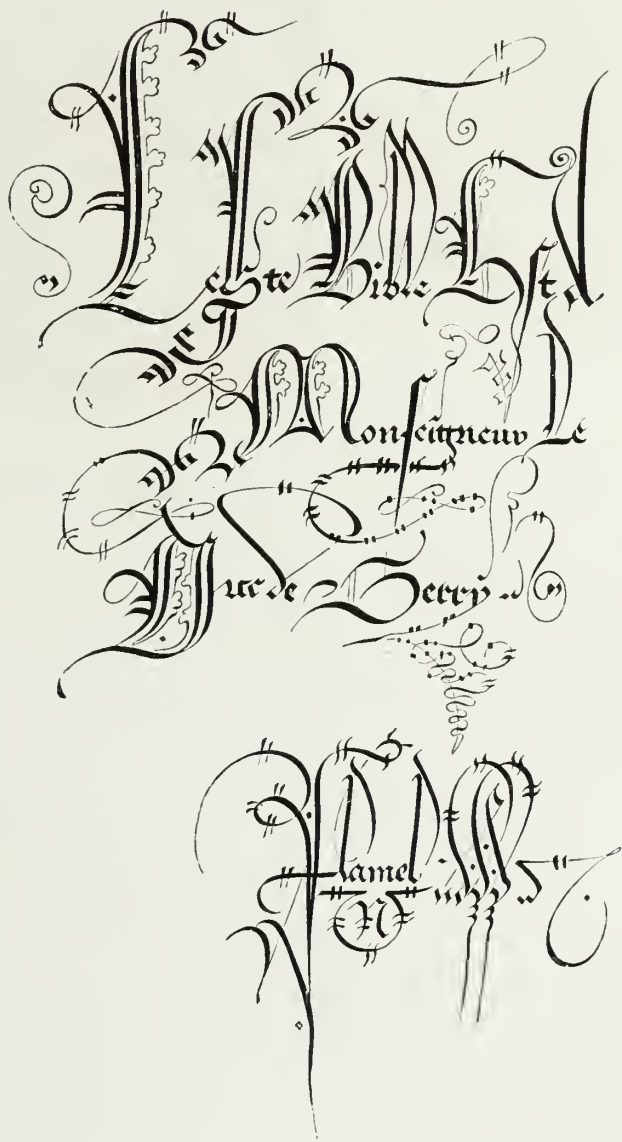 Ceste Bible Est A
Monseigneur Le
Duc de Berry
Flamel